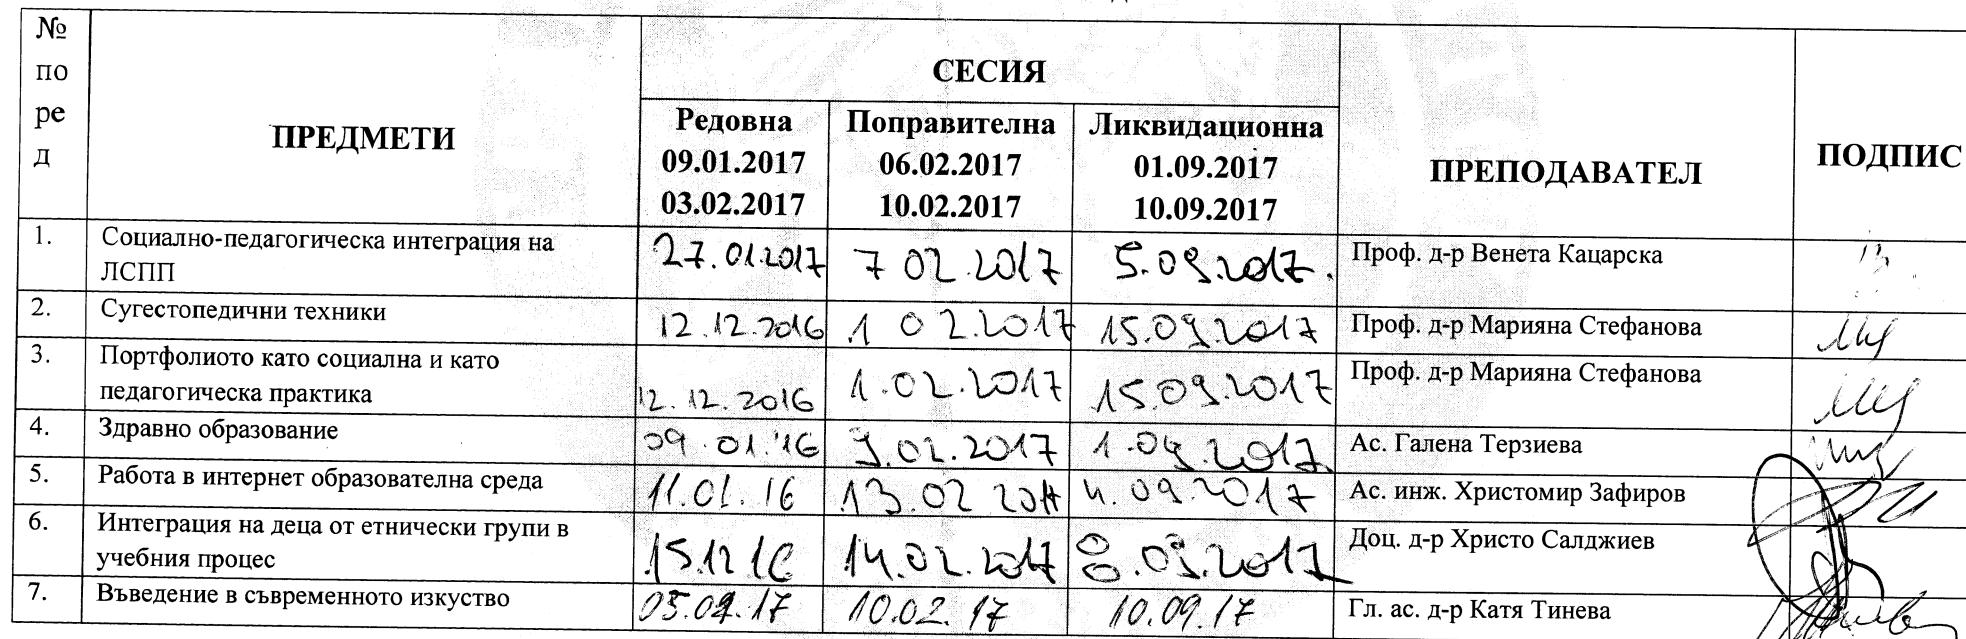 № по ре д
ПРЕДМЕТИ
СЕСИЯ
ПРЕПОДАВАТЕЛ
ПОДПИС
Редовна
09.01.2017
03.02.2017
Поправителна
06.02.2017
10.02.2017
Ликвидационна
01.09.2017
10.09.2017
1. Социално-педагогическа интеграция на
ЛСПП
27.01.2017 7 02.2017 5.09.2017. Проф. д-р Венета Кацарска
2. Сугестопедични техники 12.12.2016 1 02.2017 15.09.2017 Проф. д-р Марияна Стефанова
3. Портфолиото като социална и като
педагогическа практика
12.12.2016 1.02.2017 15.09.2017 Проф. д-р Марияна Стефанова
4. Здравно образование 09.01.'16 9.02.2017 1.09.2017 Ас. Галена Терзиева
5. Работа в интернет образователна среда 11.01.16 13.02 2017 4.09.2017 Ас. инж. Христомир Зафиров
6. Интеграция на деца от етнически групи в
учебния процес
15.12 16 14.02.2017 8.09.2017 Доц. д-р Христо Салджиев
7. Въведение в съвременното изкуство 10.02.17 10.09.17 Гл. ас. д-р Катя Тинева